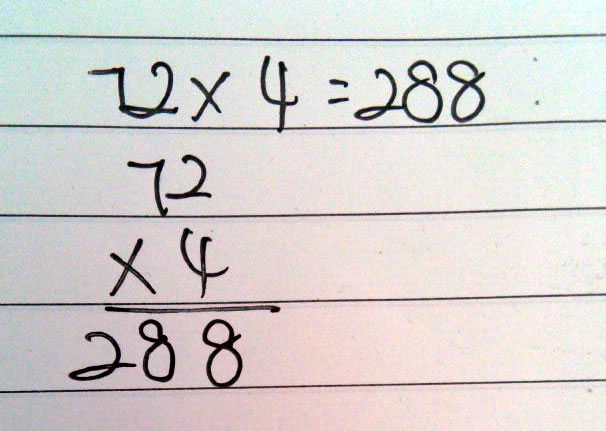 72 × 4 = 288
72
× 4
288